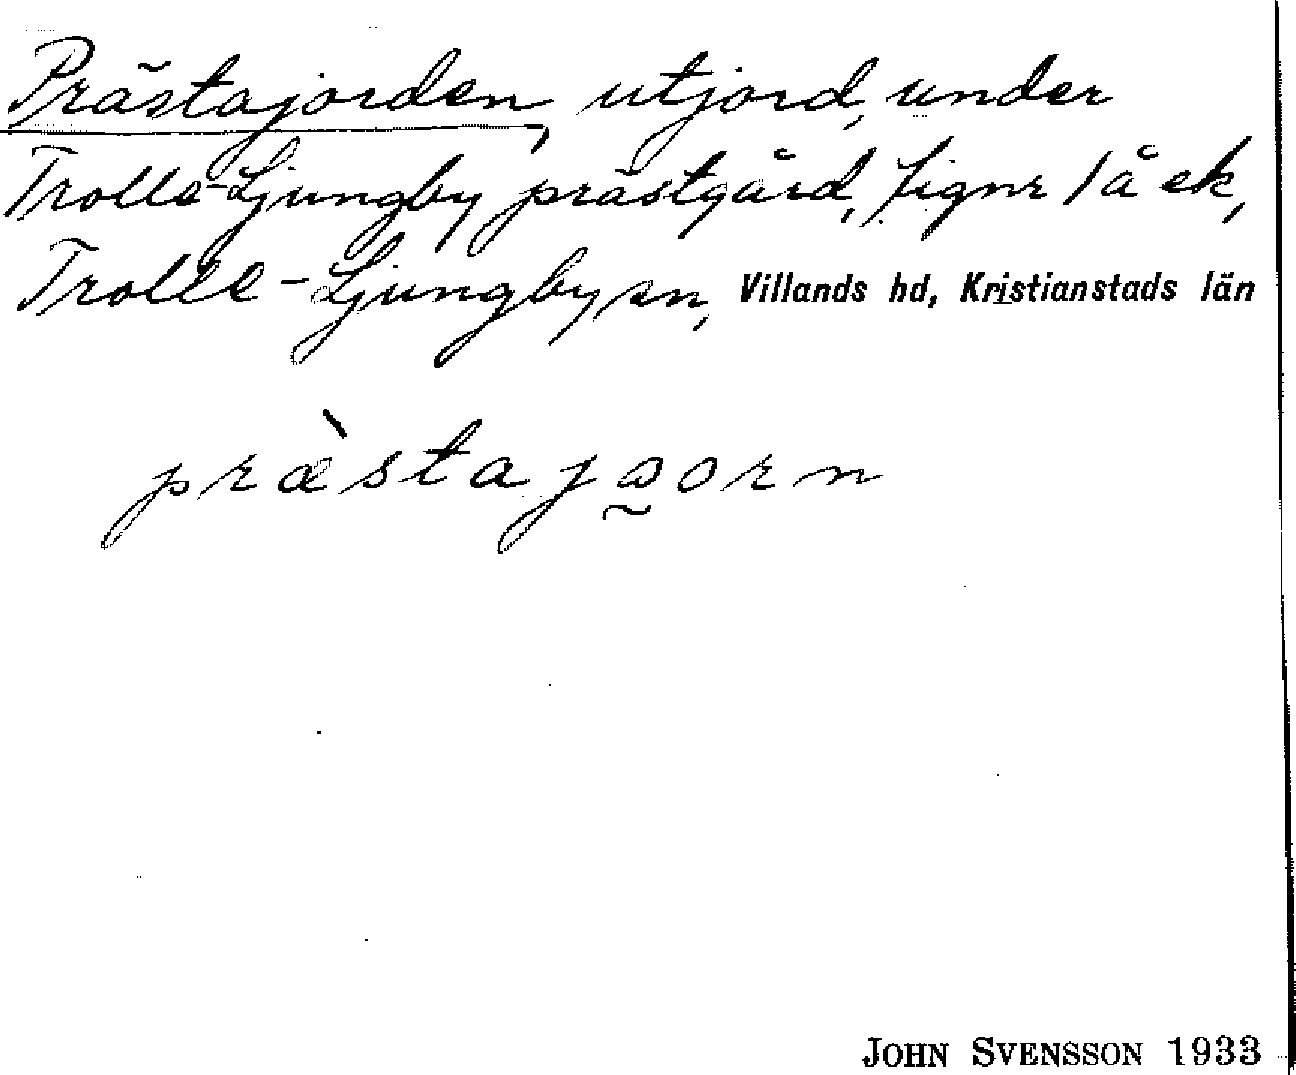 Prästajorden, utjord, under
Trolle-Ljungby prästgård, fignr 1 å ek,
Trolle-Ljungby sn, Villands hd, Kristianstads län
præ̀staja̰orn
JOHN SVENSSON 1933